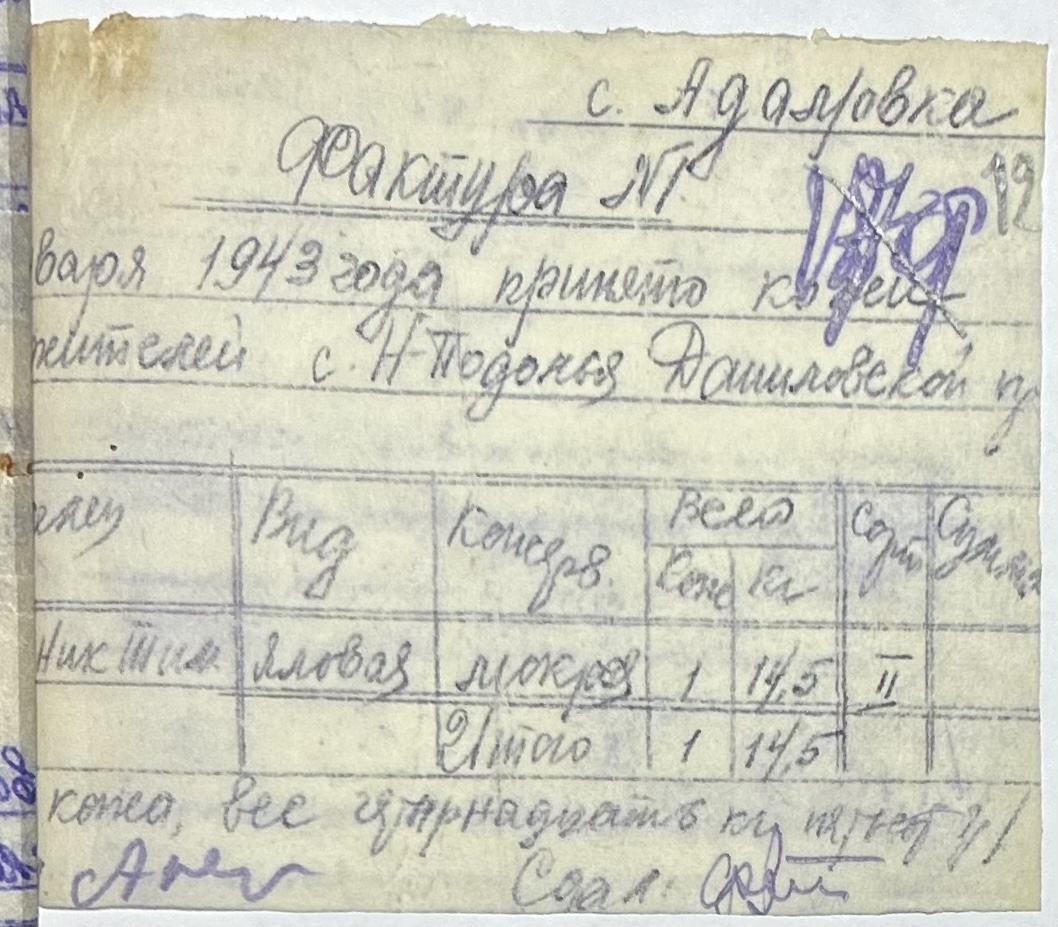 с. Адамовка
Фактура №
12
варя 1943 года принято кожей
жителей с. Н-Подолья Даниловской
Вид Консерв. Всего Сорт
Кож кг
Ник Тим яловая мокрая 1 14,5 II
Итого 1 14,5
кожа, вес четырнадцать кг
Сдал: